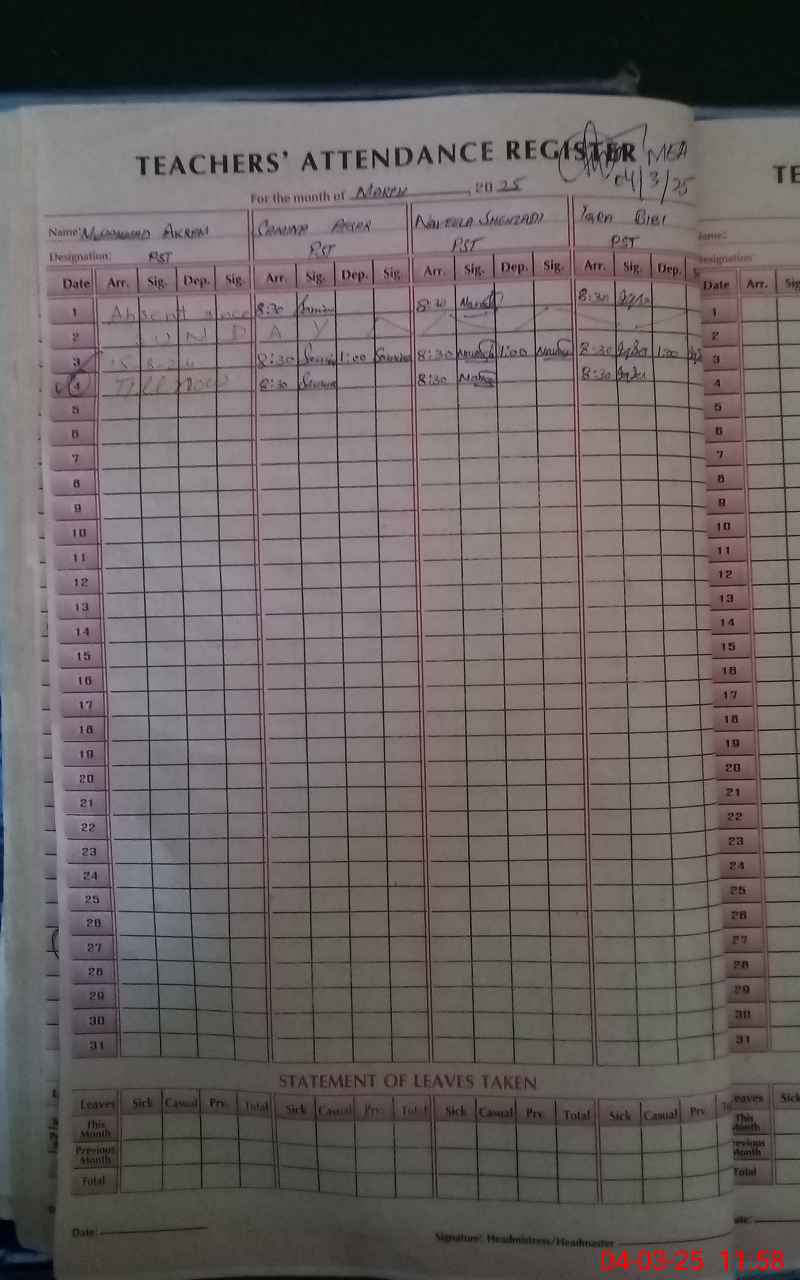 TEACHERS' ATTENDANCE REGISTER
MEA
04/3/25
For the month of March, 2025
Name: Muhammad Akram Naveela Shehzadi Bibi
Designation: PST PST PST PST
Date Arr. Sig. Dep. Sig. Arr. Sig. Dep. Sig. Arr. Sig. Dep. Sig. Arr. Sig. Dep.
1 Absent since 8:30 8:30 8:30
2 SUNDAY
3 8:30 1:00 8:30 1:00 8:30 1:00
4 Till now 8:30 8:30 8:30
5
6
7
8
9
10
11
12
13
14
15
16
17
18
19
20
21
22
23
24
25
26
27
28
29
30
31
STATEMENT OF LEAVES TAKEN
Leaves Sick Casual Prv. Total Sick Casual Prv. Total Sick Casual Prv. Total Sick Casual Prv.
This Month
Previous Month
Total
Date:
Signature: Headmistress/Headmaster
TE
Name:
Designation
Date Arr.
1
2
3
4
5
6
7
8
9
10
11
12
13
14
15
16
17
18
19
20
21
22
23
24
25
26
27
28
29
30
31
Leaves Sick
This Month
Previous Month
Total
04-03-25 11:58